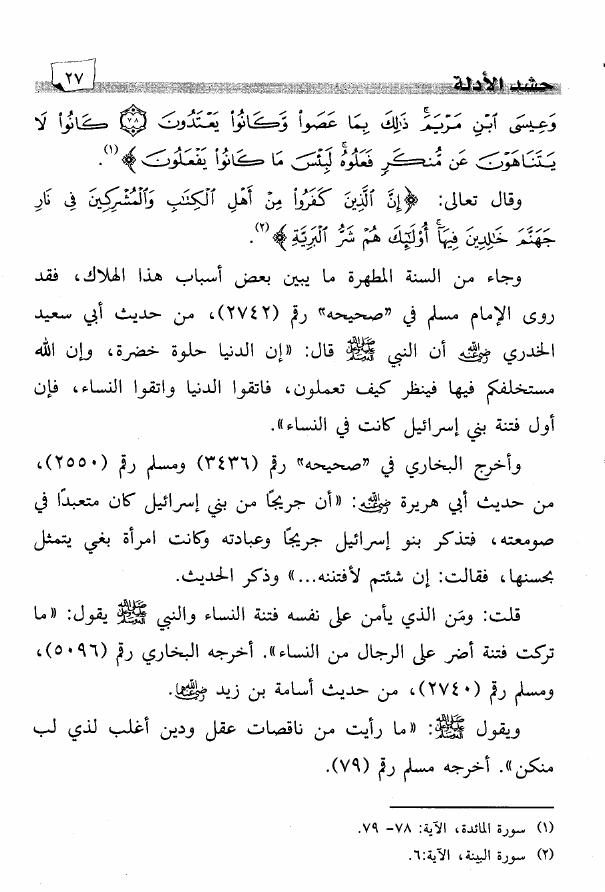 حشد الأدلة
٢٧
وَعِيسَى ٱبْنِ مَرْيَمَ ۚ ذَٰلِكَ بِمَا عَصَوا۟ وَّكَانُوا۟ يَعْتَدُونَ ﴿٧٨﴾ كَانُوا۟ لَا
يَتَنَاهَوْنَ عَن مُّنكَرٍ فَعَلُوهُ ۚ لَبِئْسَ مَا كَانُوا۟ يَفْعَلُونَ ﴾(١).
وقال تعالى: ﴿إِنَّ الَّذِينَ كَفَرُوا۟ مِنْ أَهْلِ الْكِتَابِ وَالْمُشْرِكِينَ فِي نَارِ
جَهَنَّمَ خَالِدِينَ فِيهَا ۚ أُو۟لَٰٓئِكَ هُمْ شَرُّ الْبَرِيَّةِ﴾(٢).
وجاء من السنة المطهرة ما يبين بعض أسباب هذا الهلاك، فقد
روى الإمام مسلم في "صحيحه" رقم (٢٧٤٢)، من حديث أبي سعيد
الخدري رضي الله عنه أن النبي ﷺ قال: «إن الدنيا حلوة خضرة، وإن الله
مستخلفكم فيها فينظر كيف تعملون، فاتقوا الدنيا واتقوا النساء، فإن
أول فتنة بني إسرائيل كانت في النساء».
وأخرج البخاري في "صحيحه" رقم (٣٤٣٦) ومسلم رقم (٢٥٥٠)،
من حديث أبي هريرة رضي الله عنه: «أن جريجًا من بني إسرائيل كان متعبدًا في
صومعته، فتذكر بنو إسرائيل جريجًا وعبادته وكانت امرأة بغي يتمثل
بحسنها، فقالت: إن شئتم لأفتننه...» وذكر الحديث.
قلت: ومَن الذي يأمن على نفسه فتنة النساء والنبي ﷺ يقول: «ما
تركت فتنة أضر على الرجال من النساء». أخرجه البخاري رقم (٥٠٩٦)،
ومسلم رقم (٢٧٤٠)، من حديث أسامة بن زيد رضي الله عنهما.
ويقول ﷺ: «ما رأيت من ناقصات عقل ودين أغلب لذي لب
منكن». أخرجه مسلم رقم (٧٩).
(١) سورة المائدة، الآية: ٧٨- ٧٩.
(٢) سورة البينة، الآية:٦.